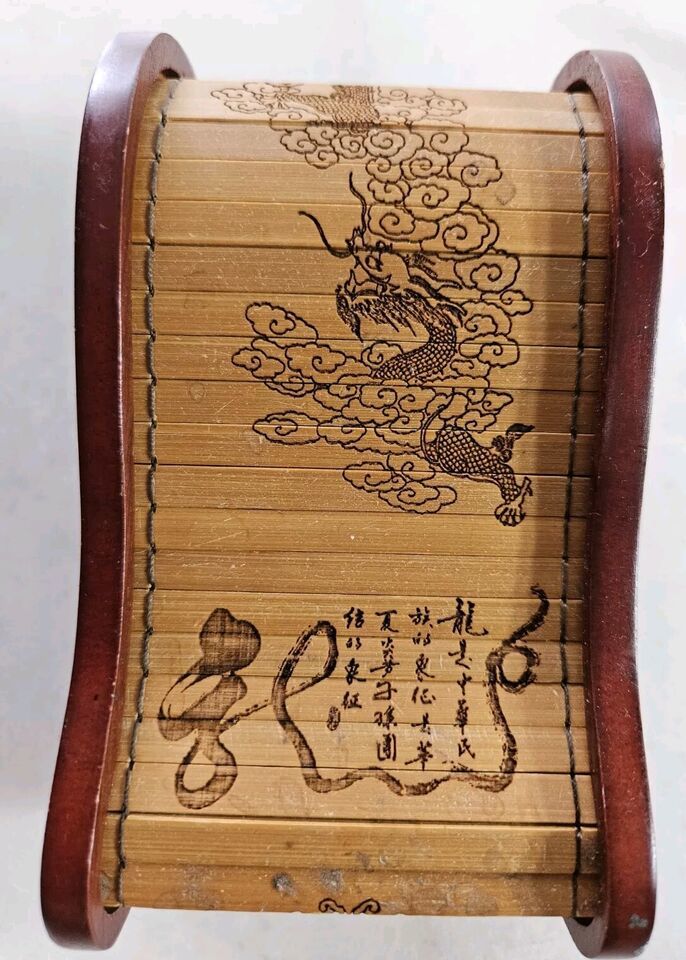 龍是中華民
族的象征是華
夏炎黃子孫團
结的象征